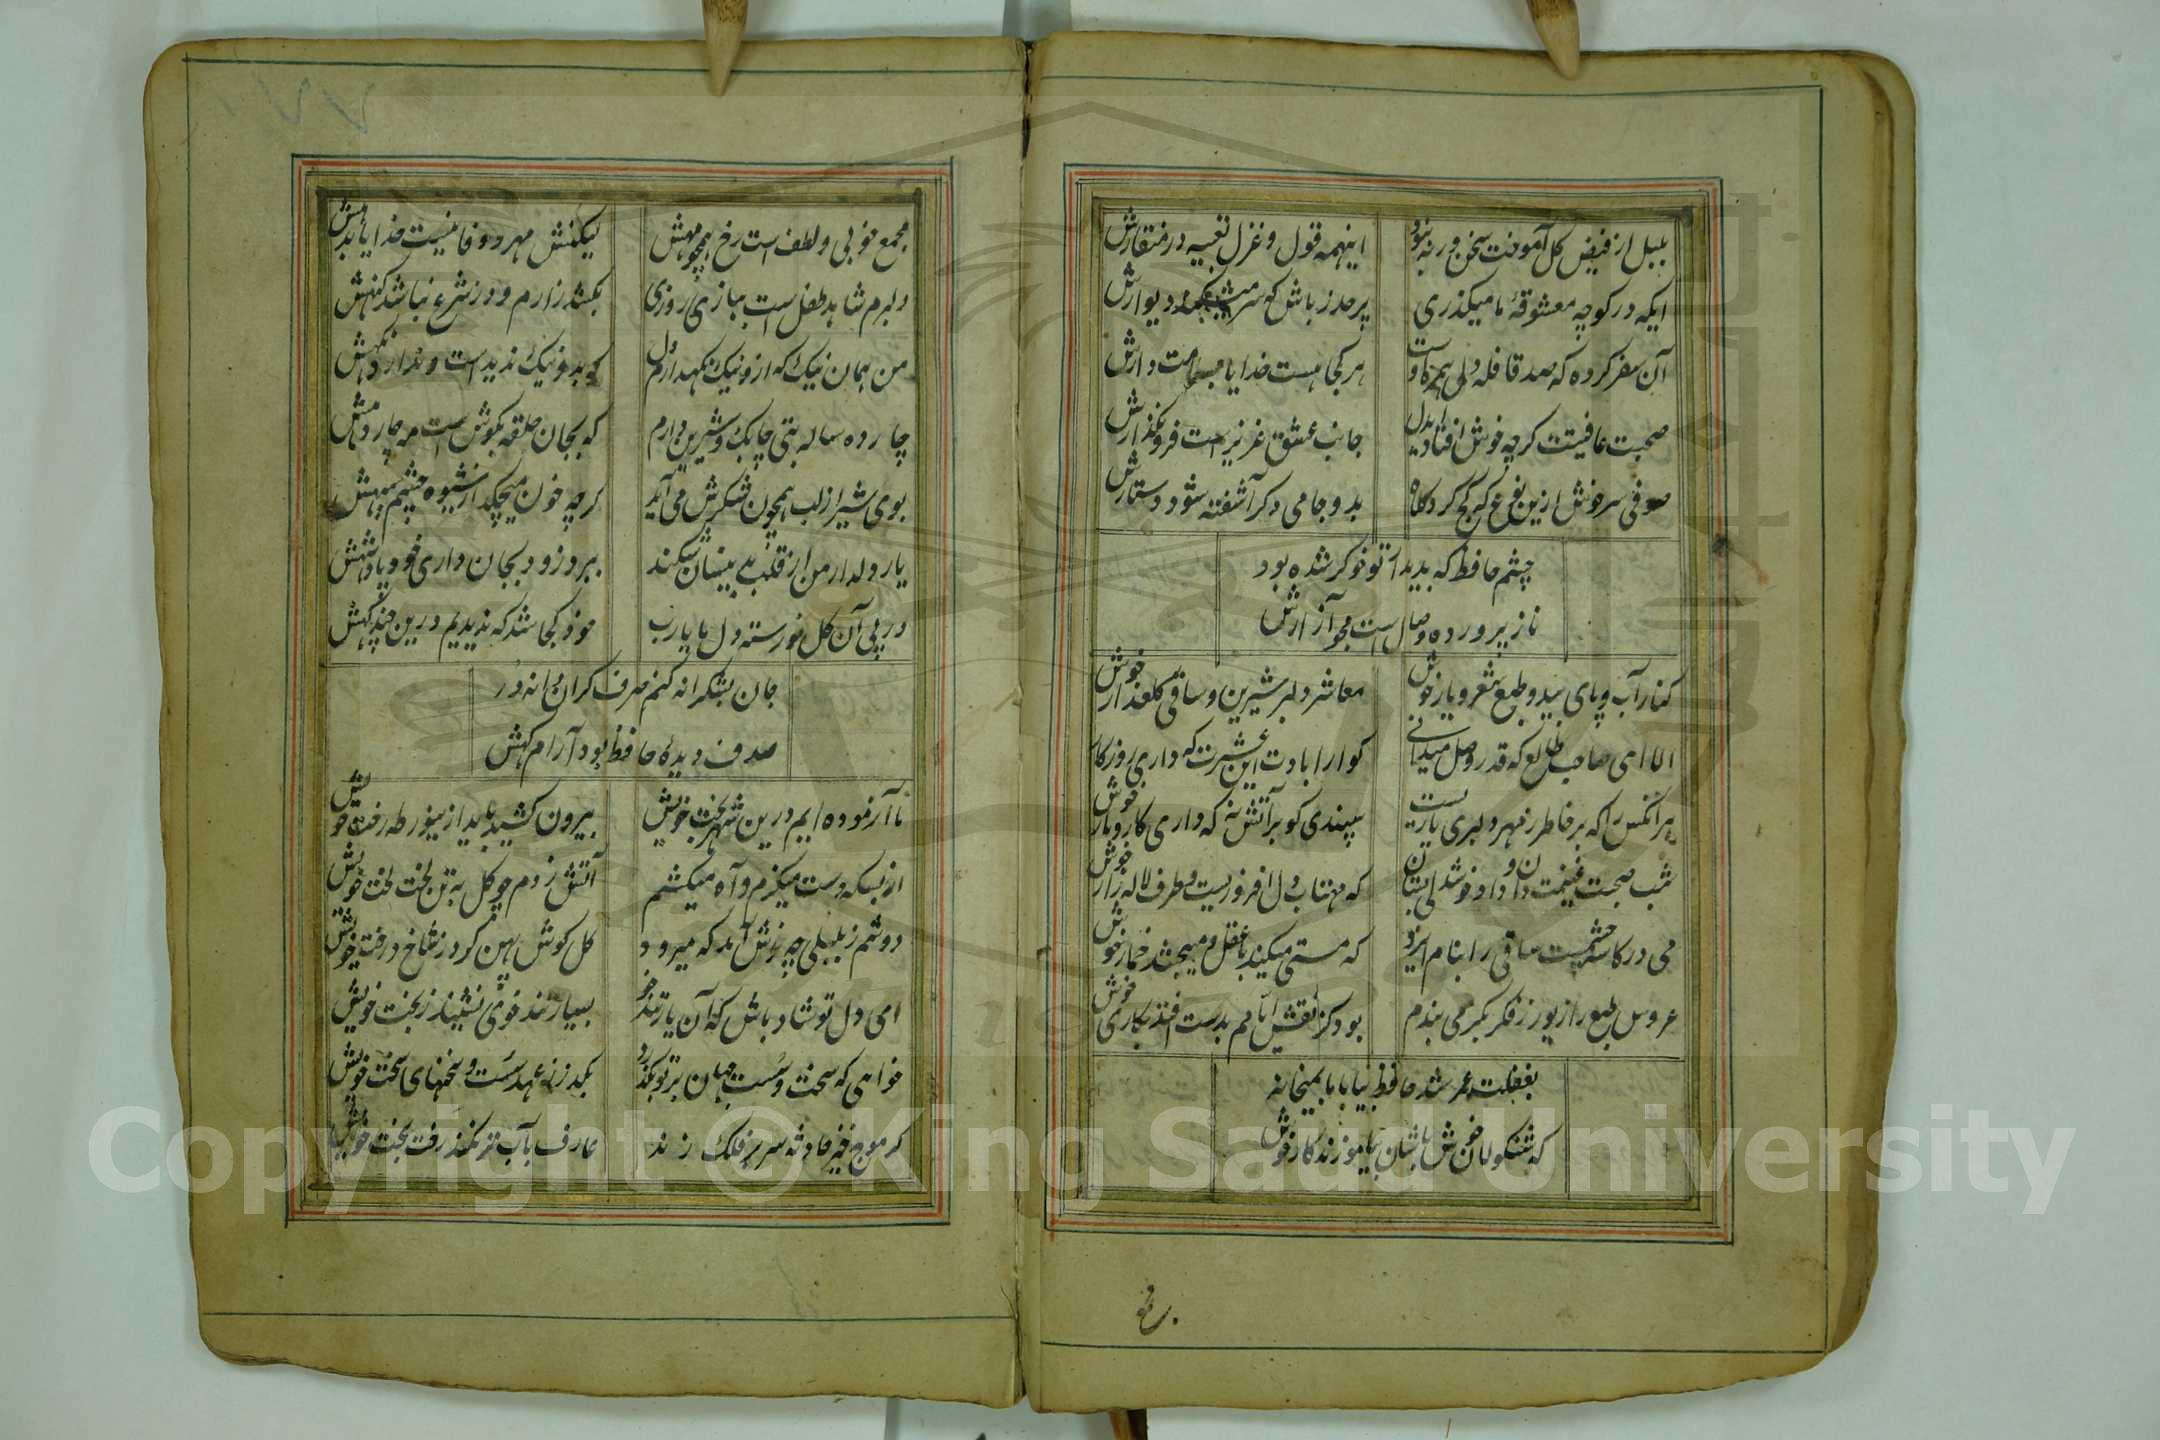 بلبل از فیض کل آموخت سخن ورنه نبود
اینهمه قول و غزل تعبیه در منقارش
ایکه در کوچه معشوقهٔ ما میکذری
پر حذر باش که سر میشکند دیوارش
آن سفر کرده که صد قافله دل همره اوست
هر کجا هست خدایا بسلامت دارش
صحبت عافیتت کرچه خوش افتاد ایدل
جانب عشق عزیز است فرو مکذارش
صوفی سرخوش ازین نوع که کج کرد کلاه
بدو جامی دکر آشفته شود دستارش
چشم حافظ که بدیدار تو خوکر شده بود
ناز پرورده وصال است مجو آزارش
کنار آب و پای بید و طبع شعر و یار خوش
معاشر دلبر شیرین و ساقی کلعذار خوش
الا ای صاحب طالع که قدر وصل میدانی
کوارا بادت این عشرت که داری روزکار
هر آنکس را که بر خاطر ز مهر دلبری باریست
سپندی کو بر آتش نه که داری کار و بار خوش
شب صحبت غنیمت دان و داد خوشدلی بستان
که مهتاب دل افروزیست و طرف لاله زار خوش
می در کاسه چشمست ساقی را بنام ایزد
که مستی میکند با عقل و میبخشد خمار خوش
عروس طبع را زیور ز فکر بکر می بندم
بود کز نقش ایام بدست افتد نکاری خوش
بغفلت عمر شد حافظ بیا با ما بمیخانه
که شنکولان خوش باشان بیاموزند کار خوش
مجمع خوبی و لطف است رخ همچو مهش
لیکنش مهر و وفا نیست خدایا بدهش
دلبرم شاهد طفل است ببازی روزی
بکشد زارم و در شرع نباشد کنهش
من همان نیک که ازو نیک نکهدارم دل
که بد و نیک ندید است و ندارد نکهش
چارده ساله بتی چابک و شیرین دارم
که بجان حلقه بکوش است مه چاردهش
بوی شیر از لب همچون شکرش می آید
کرچه خون میچکد از شیوه چشم سیهش
یار دلدار من ار قلب بدینسان شکند
ببرد زود بجان داری خود پادشهش
در پی آن کل نورسته دل ما یارب
خود کجا شد که ندیدیم درین چند کهش
جان بشکرانه کنم صرف کر آن دانه در
صدف دیدهٔ حافظ بود آرام کهش
ما آزموده ایم درین شهر بخت خویش
بیرون کشید باید ازین ورطه رخت خویش
از بسکه دست میکزم و آه میکشم
آتش زدم چو کل به تن لخت لخت خویش
دوشم ز بلبلی چه خوش آمد که میرود
کل کوش پهن کرد ز شاخ درخت خویش
ای دل تو شاد باش که آن یار تندخو
بسیار تند خوی نشیند ز بخت خویش
خواهی که سخت و سست جهان بر تو بکذرد
بکذر ز عهد سست و سخنهای سخت خویش
کر موج خیز حادثه سر بر فلک زند
عارف بآب تر نکند رخت بخت خویش